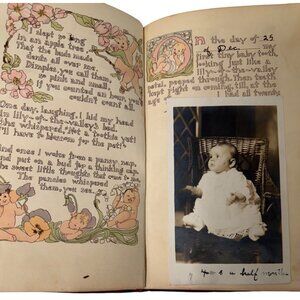 I slept so long
in an apple tree
That the buds made
dents all over me.
Dimples, you call them,
so pink and small
If you counted an hour, you
couldn't count all.
One day, laughing, I hid my head
In lily-of-the-valley's bed.
She whispered, "Not a toothie yet!
I'll have to blossom for the pet!"
And once I woke from a pansy nap,
and put on a bud for a thinking cap.
The sweet little thoughts that come to me,
The pansies whispered
them, you see.
On the day of 25
of Dec. my
first tiny baby tooth,
looking just like a
lily-of-the-valley
petal, peeped through. Then teeth
kept right on coming, till, at the
age of I had all twenty.
4 and a half months